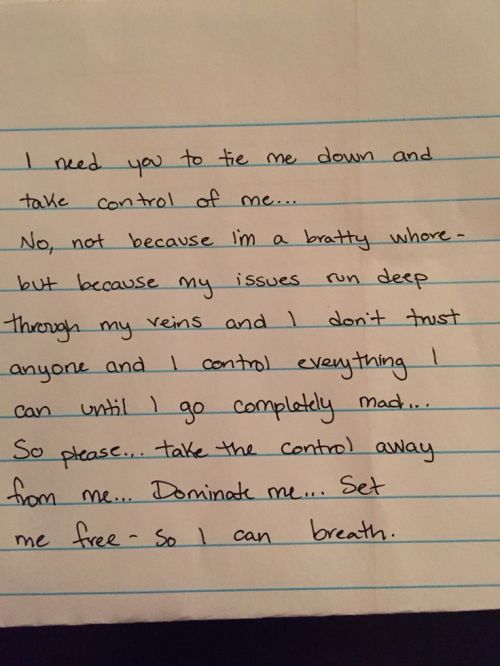 I need you to tie me down and
take control of me...
No, not because I'm a bratty whore -
but because my issues run deep
through my veins and I don't trust
anyone and I control everything I
can until I go completely mad...
So please... take the control away
from me... Dominate me... Set
me free - So I can breath.